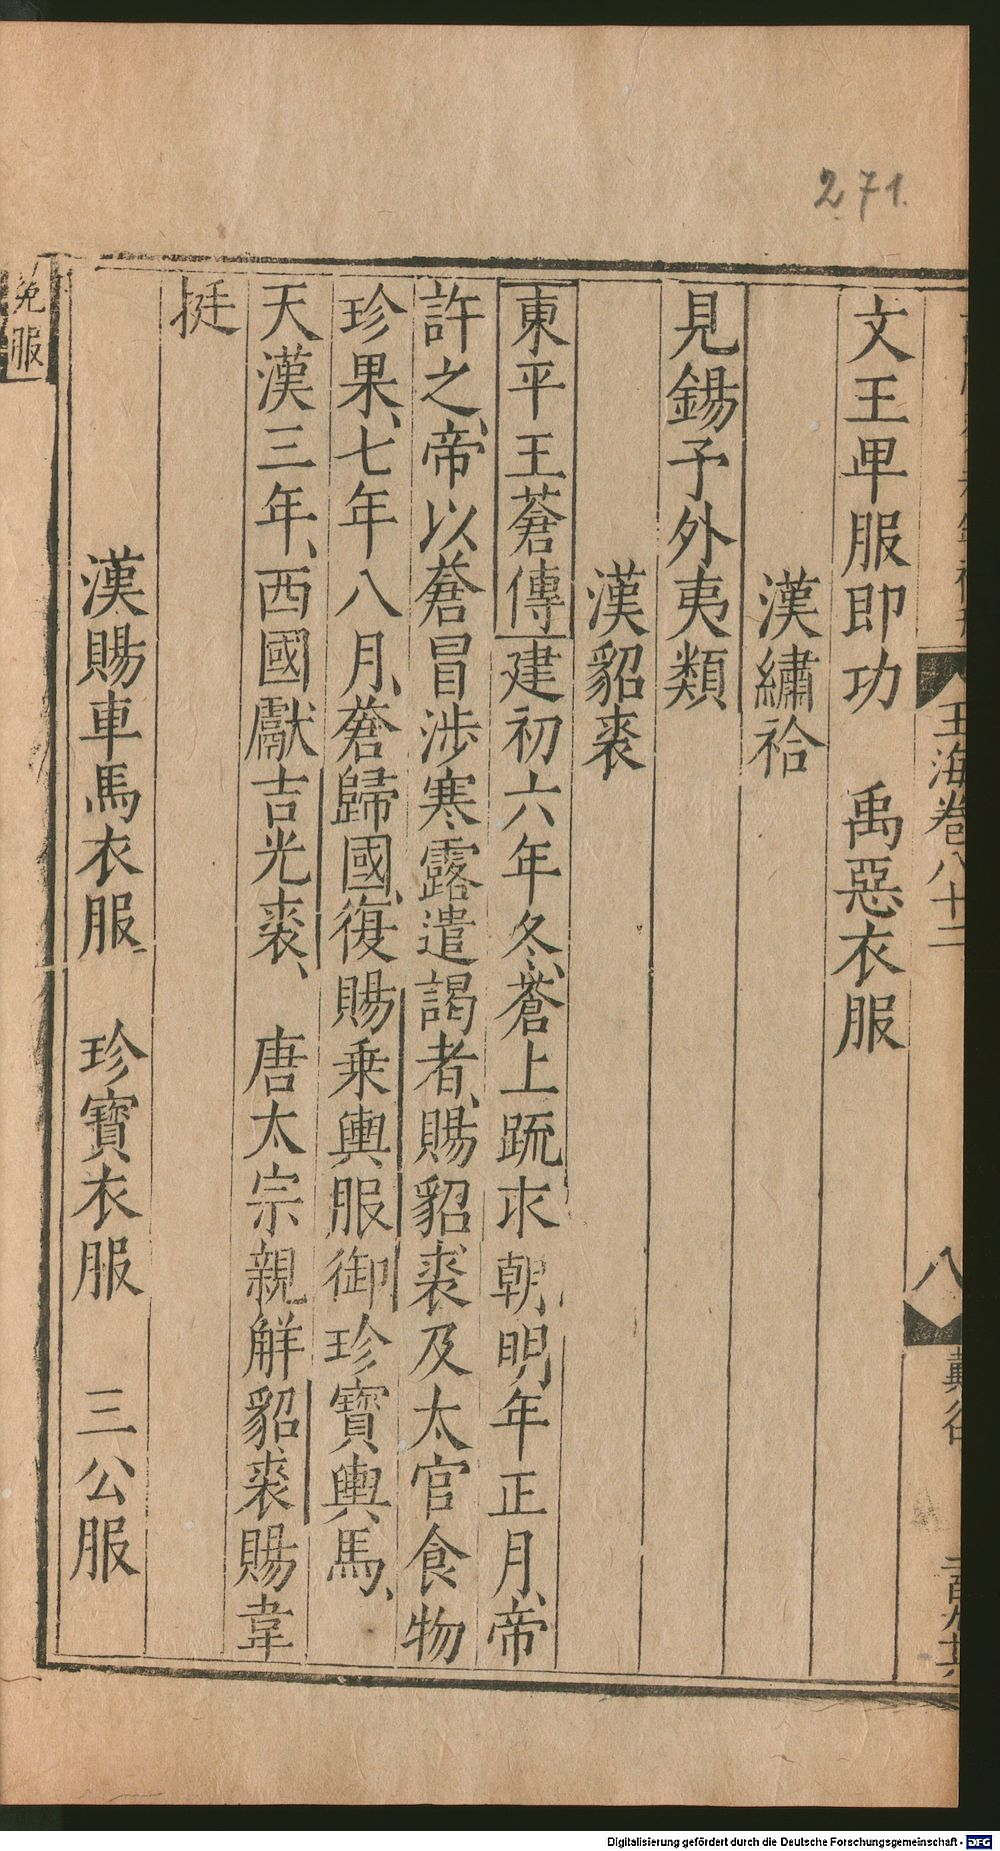 271.
玉海卷八十二
八
文王卑服即功　禹惡衣服
漢繡袷
見錫予外夷類
漢貂裘
東平王蒼傳建初六年冬、蒼上疏求朝明年正月、帝
許之、帝以蒼冒涉寒露遣謁者、賜貂裘及太官食物
珍果、七年八月、蒼歸國、復賜乗輿服御珍寶輿馬、
天漢三年、西國獻吉光裘、　唐太宗親解貂裘賜韋
挺
漢賜車馬衣服　珍寶衣服　三公服
冕服
Digitalisierung gefördert durch die Deutsche Forschungsgemeinschaft - DFG